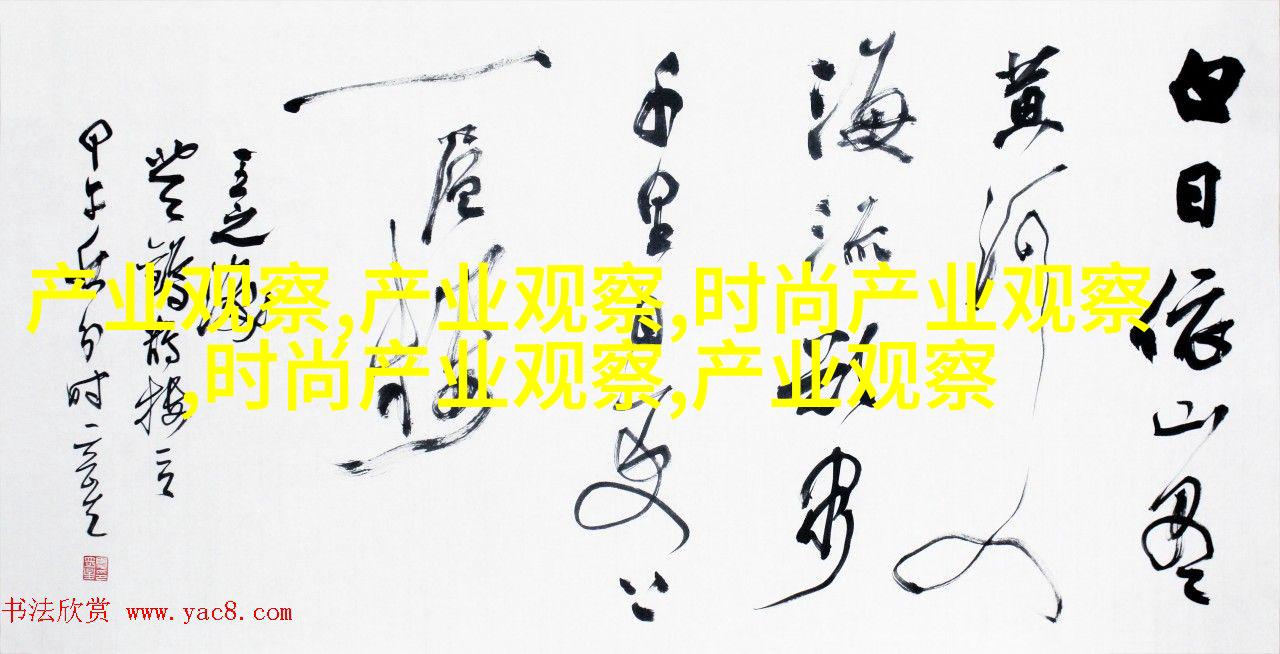 白日依山尽
黄河入
海流欲穷
千里目更上
一层楼
王之涣
登鹳雀楼
甲午
产业观察,产业观察,时尚产业观察
,时尚产业观察,产业观察
书法欣赏 www.yac8.com